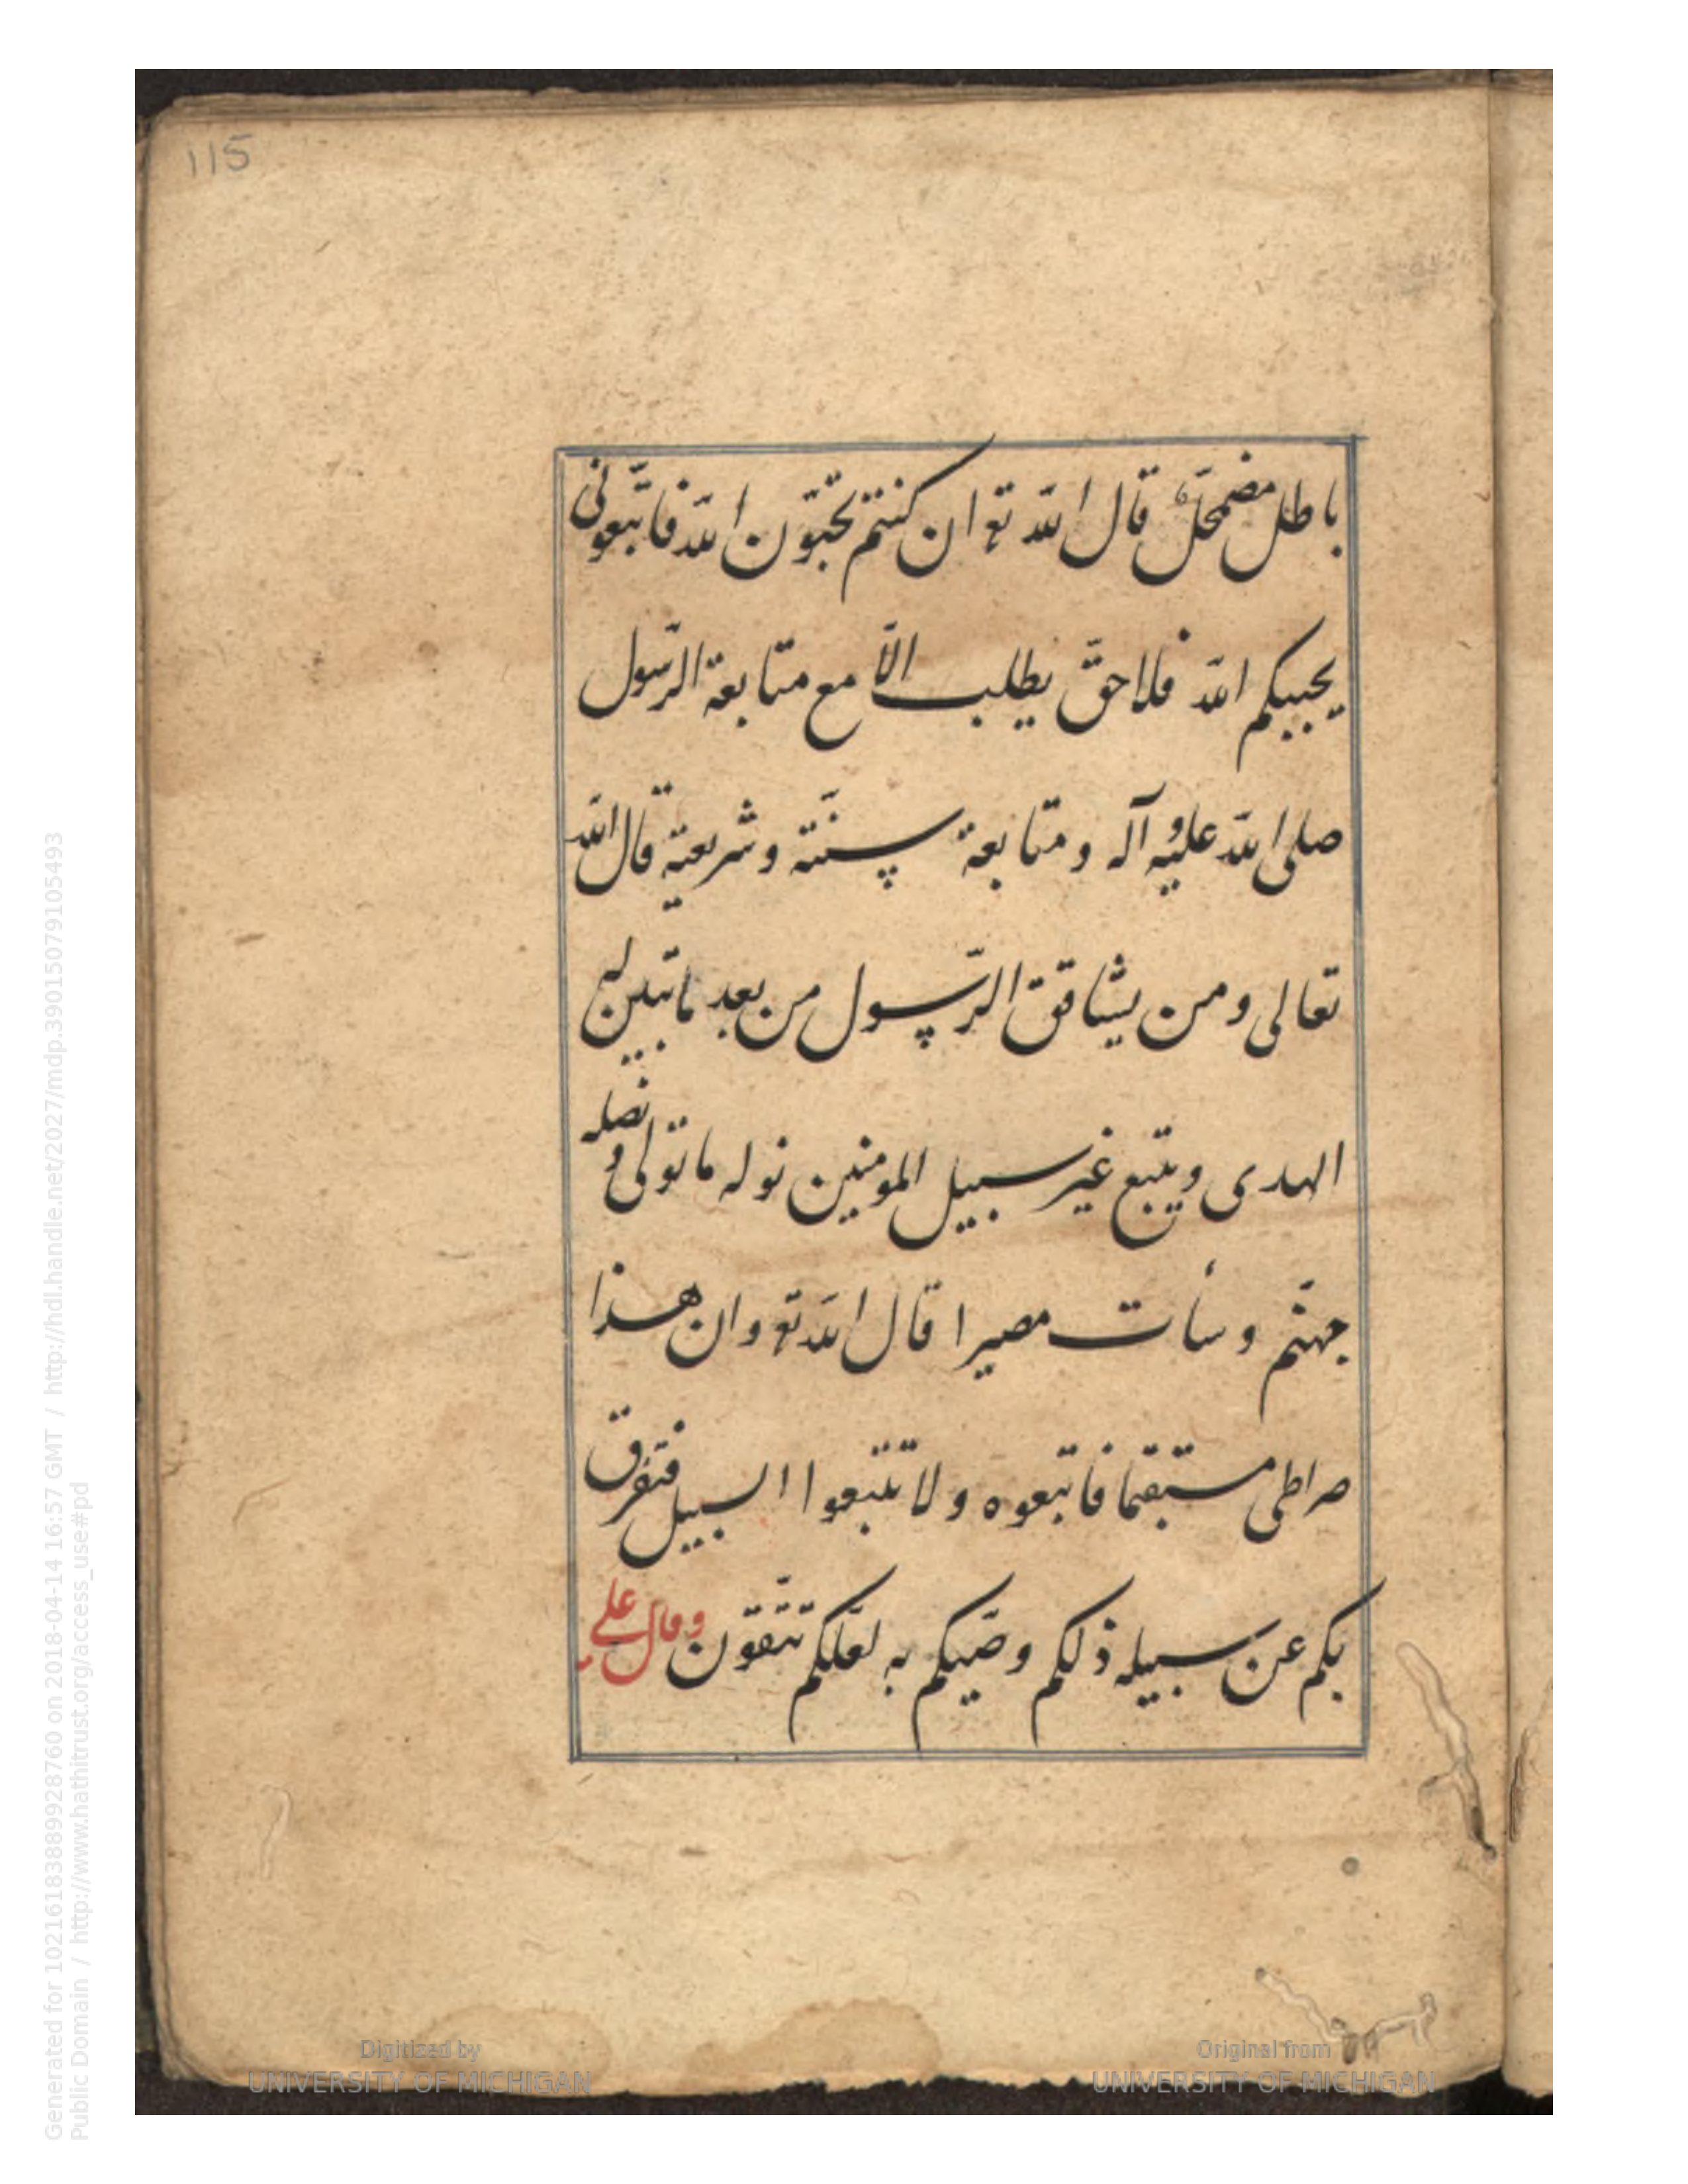 115
باطل مضمحلّ قال اللّه تع ان كنتم تحبّون اللّه فاتّبعونى
يحببكم اللّه فلا حقّ يطلب الّا مع متابعة الرّسول
صلى اللّه عليه وآله و متابعة سنّته وشريعته قال اللّه
تعالى ومن يشاقق الرّسول من بعد ما تبين له
الهدى ويتبع غير سبيل المومنين نوله ما تولى و نصله
جهنّم وسأت مصيرا قال اللّه تع وان هذا
صراطى مستقيما فاتبعوه ولا تتبعوا السبيل فتفرق
بكم عن سبيله ذلكم وصّيكم به لعلّكم تتّقون وقال على
Digitized by
UNIVERSITY OF MICHIGAN
Original from
UNIVERSITY OF MICHIGAN
Generated for 10216183889928760 on 2018-04-14 16:57 GMT / http://hdl.handle.net/2027/mdp.39015079105493
Public Domain / http://www.hathitrust.org/access_use#pd